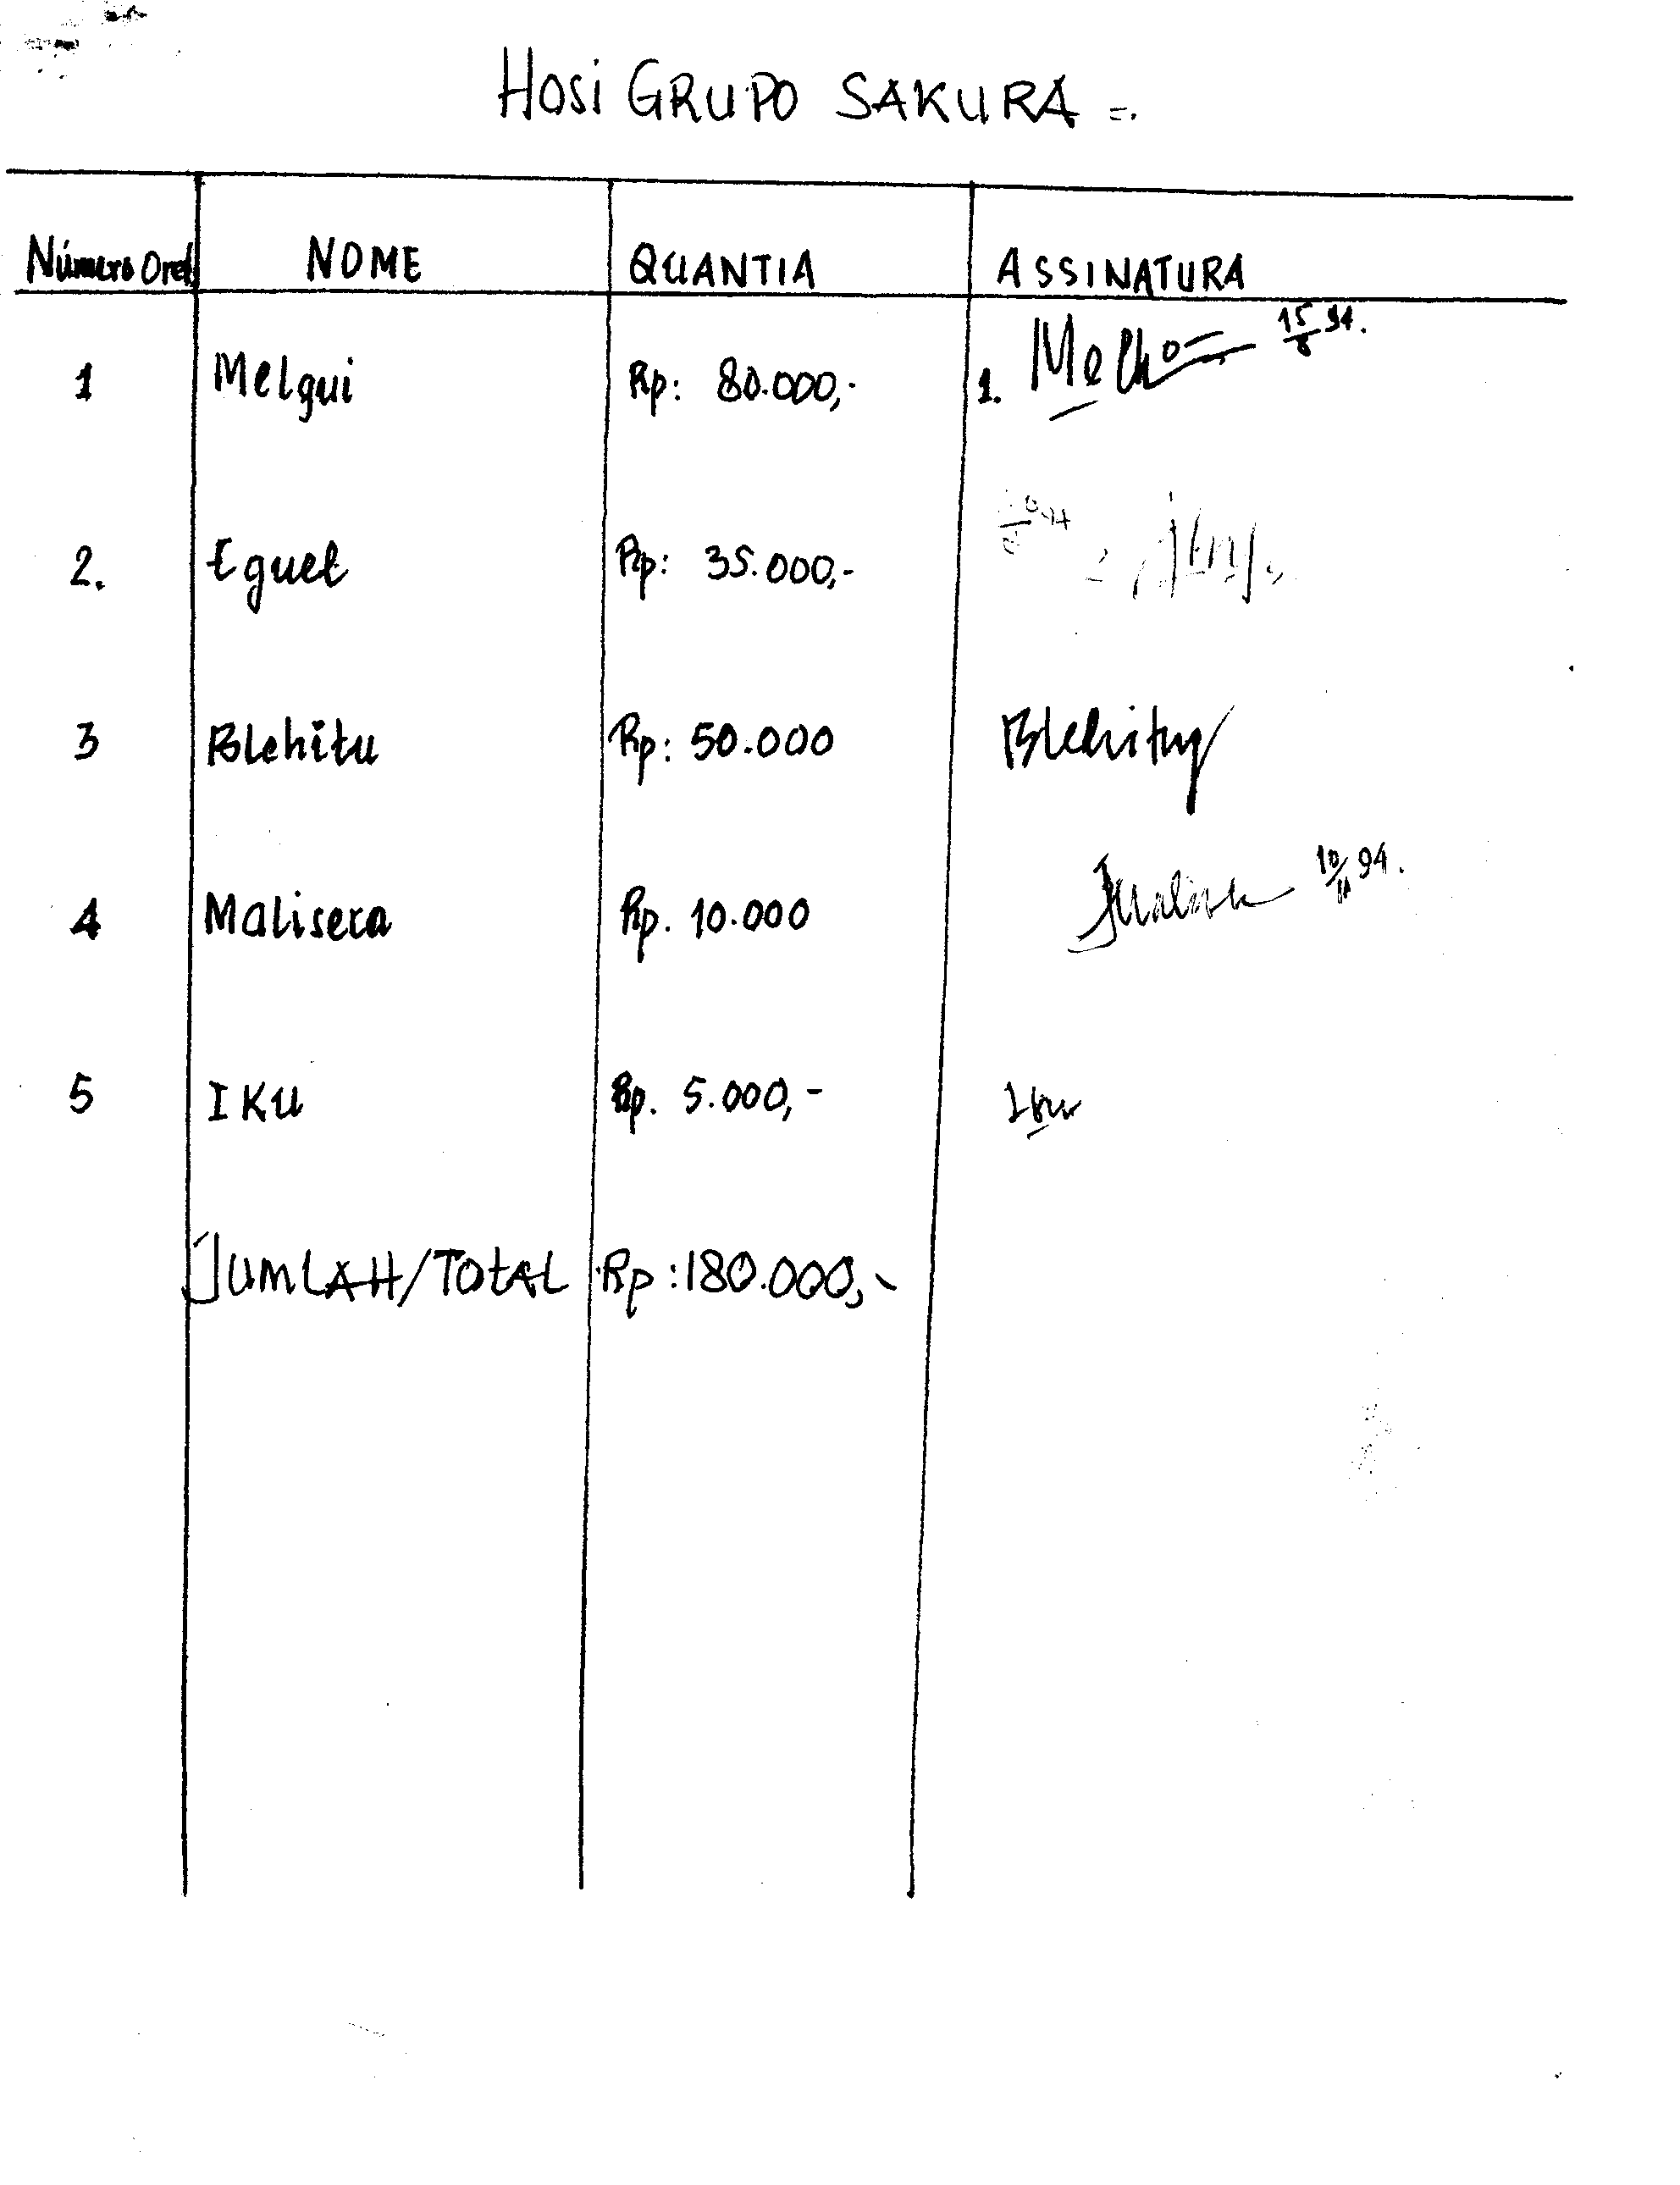 HOSI GRUPO SAKURA =.
Número Ord. NOME QUANTIA ASSINATURA
1 Melgui Rp: 80.000,- 1. Melko 15/8 94.
2. Eguel Rp: 35.000,-
3 Blehitu Rp: 50.000 Blehitu
4 Malisera Rp. 10.000 10/11 94.
5 IKU Rp. 5.000,- Iku
JUMLAH/TOTAL Rp: 180.000,-